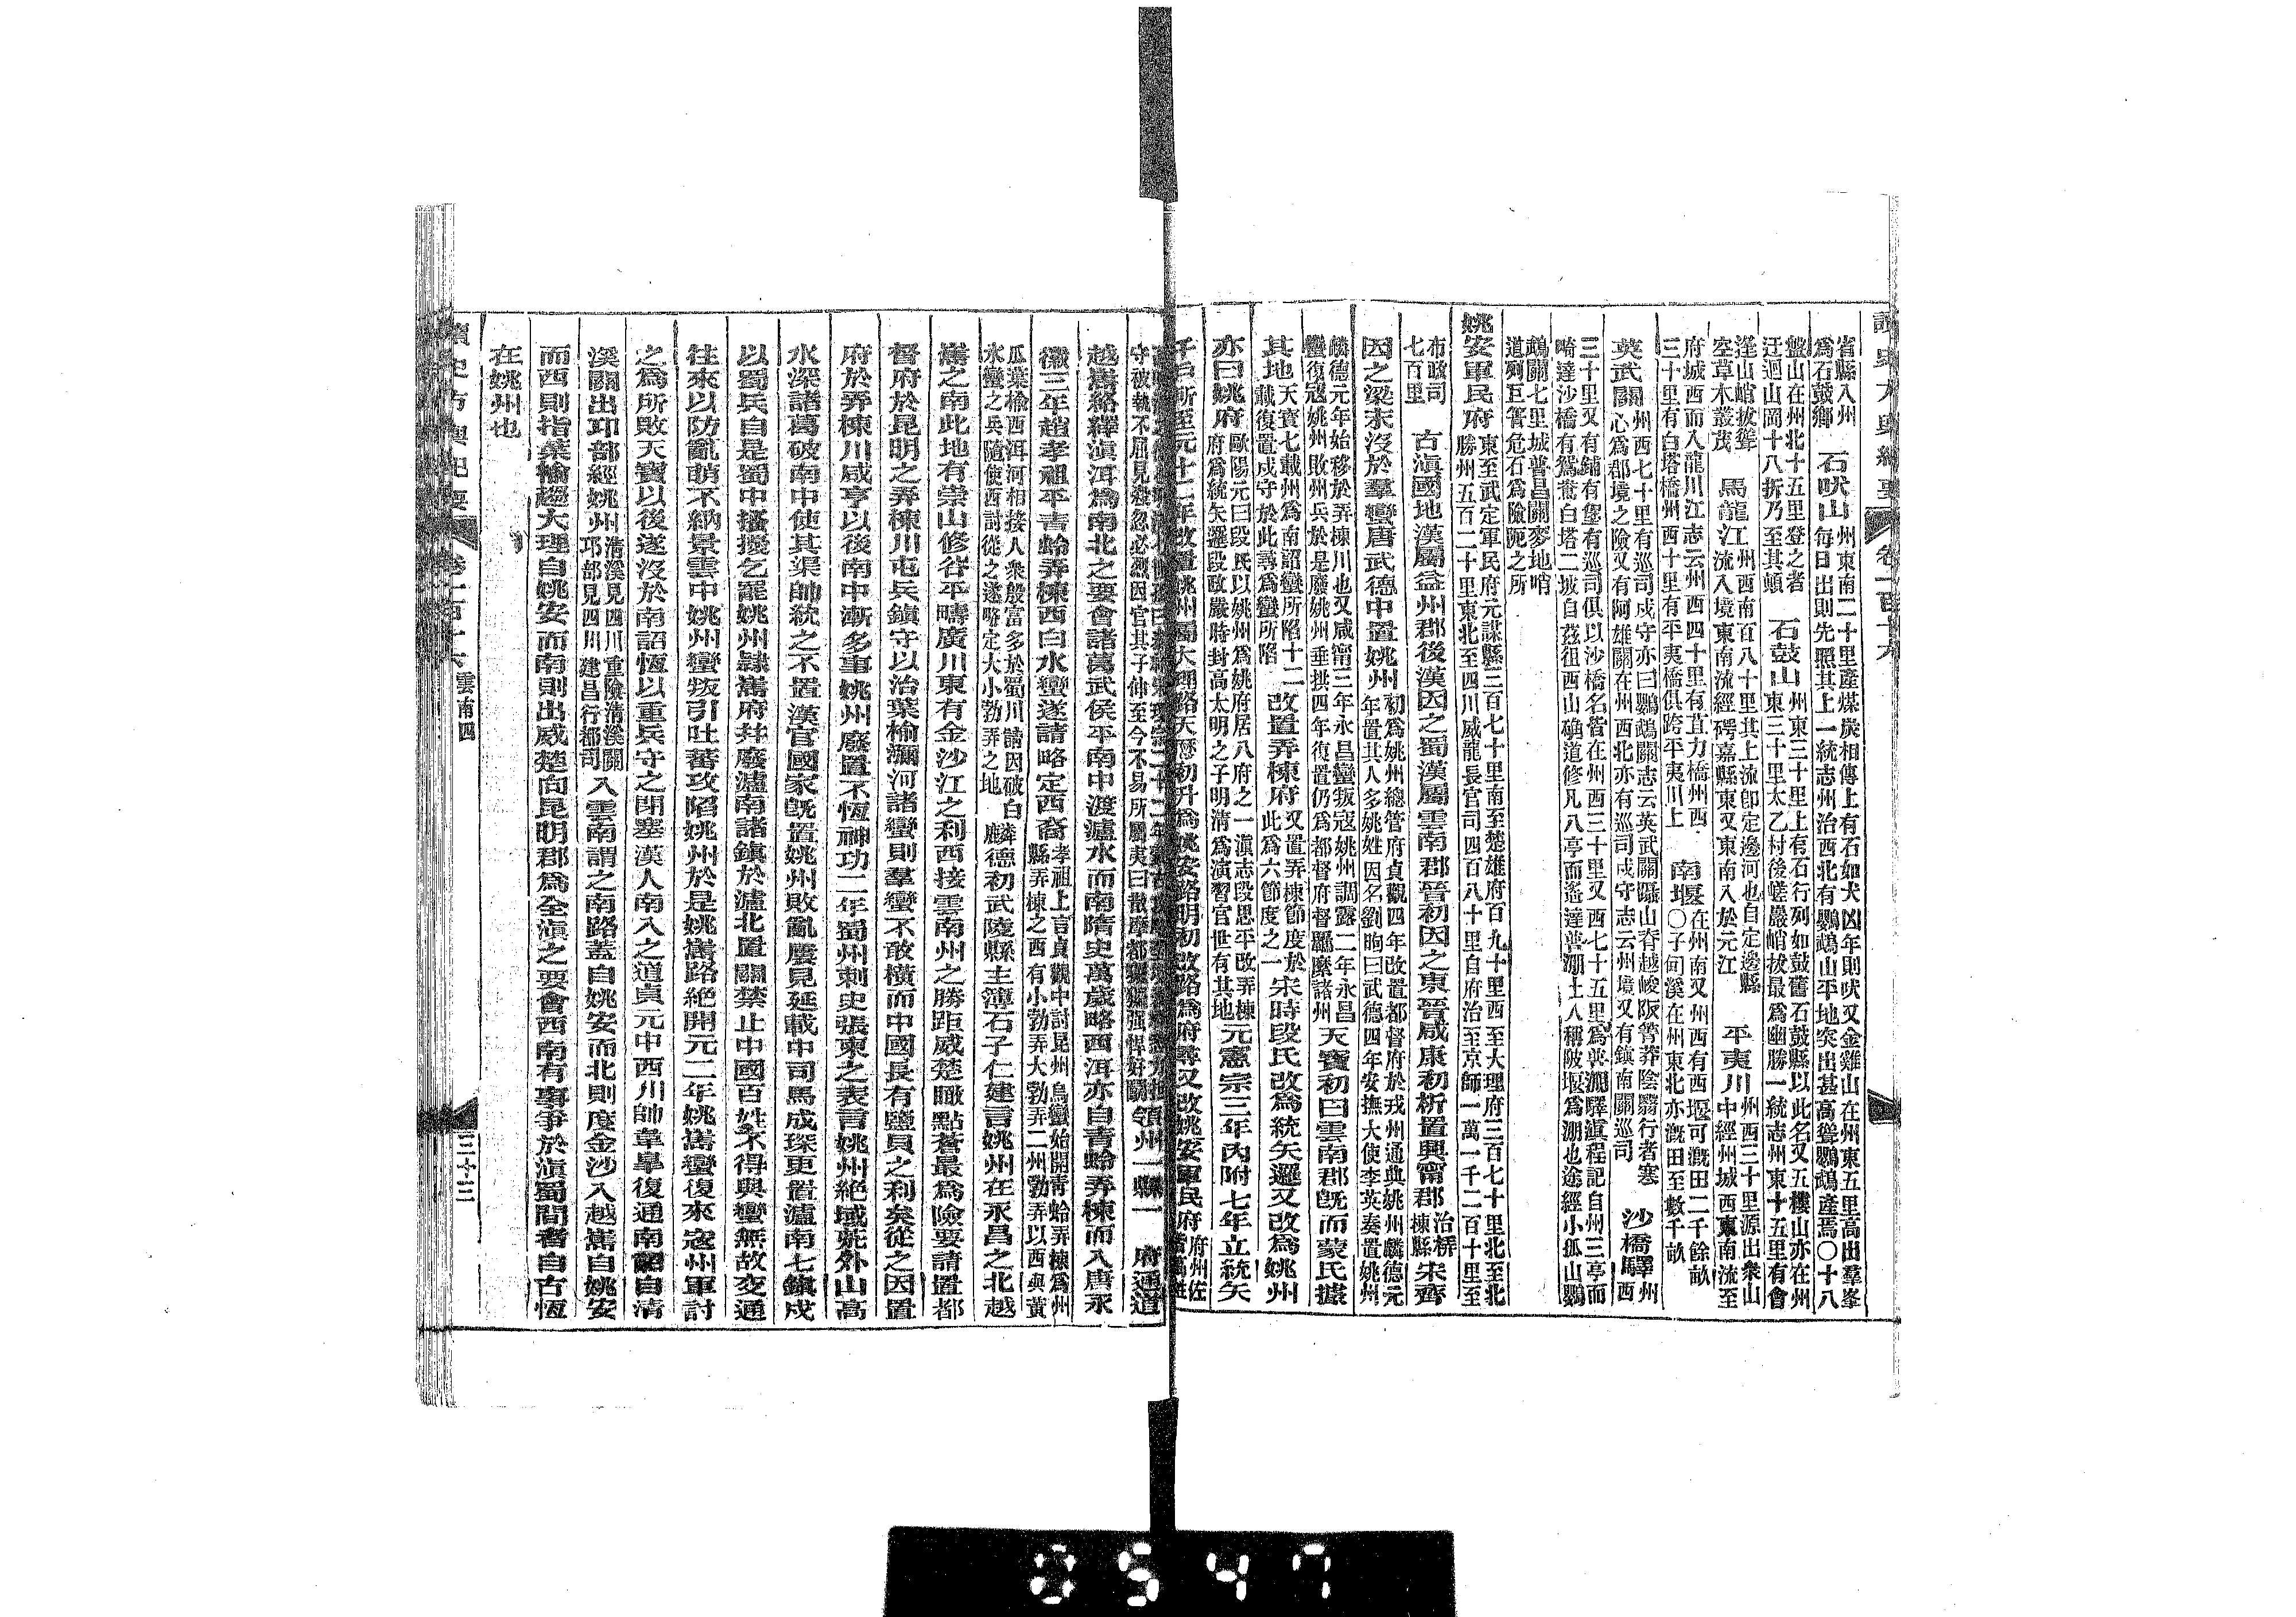 讀史方輿紀要 卷一百十六
省縣入州爲石鼓鄉 石吠山州東南二十里產煤炭相傳上有石如犬凶年則吠又金雞山在州東五里高出羣峯每日出則先照其上一統志州治西北有鸚鵡山平地突出甚高聳鸚鵡產焉〇十八
盤山在州北十五里登之者迂迴山岡十八折乃至其頓 石鼓山州東三十里上有石行列如鼓舊石鼓縣以此名又五樓山亦在州東三十里太乙村後嵯巖峭拔最爲幽勝一統志州東十五里有會
溪山峭拔聳空草木叢茂 馬龍江州西南百八十里其上流卽定邊河也自定邊縣流入境東南流經碍嘉縣東又東南入於元江 平夷川州西三十里源出衆山中經州城西東南流至
府城西而入龍川江志云州西四十里有直力橋州西三十里有白塔橋州西十里有平夷橋俱跨平夷川上 南堰在州南又州西有西堰可漑田二千餘畝〇子甸溪在州東北亦漑田至數千畝
英武關州西七十里有巡司戍守亦曰鸚鵡關志云英武關踞山脊越峻阪箐莽陰翳行者塞心爲郡境之險又有阿雄關在州西北亦有巡司戍守志云州境又有鎮南關巡司 沙橋驛州西
三十里又有鋪有堡有巡司俱以沙橋名皆在州西三十里又西七十五里爲普淜驛滇程記自州三亭而畸達沙橋有鴛鴦白塔二坡自茲徂西山确道修凡八亭而遙達普淜土人稱陂堰爲淜也途經小孤山鸚
鵡關七里城普昌關麥地哨道列巨箐危石爲險阨之所
姚安軍民府東至武定軍民府元謀縣三百七十里南至楚雄府百九十里西至大理府三百七十里北至北勝州五百二十里東北至四川威龍長官司四百八十里自府治至京師一萬一千二百十里至
布政司七百里 古滇國地漢屬益州郡後漢因之蜀漢屬雲南郡晉初因之東晉咸康初析置興甯郡治梇棟縣宋齊
因之梁末沒於羣蠻唐武德中置姚州初爲姚州總管府貞觀四年改置都督府於戎州通典姚州麟德元年置其人多姚姓因名劉昫曰武德四年安撫大使李英奏置姚州
麟德元年始移於弄棟川也又咸甯三年永昌蠻叛寇姚州調露二年永昌蠻復寇姚州敗州兵於是廢姚州垂拱四年復置仍爲都督府督羈縻諸州 天寶初曰雲南郡旣而蒙氏據
其地天寶七載州爲南詔蠻所陷十二載復置戍守於此尋爲蠻所陷 改置弄棟府又置弄棟節度於此爲六節度之一 宋時段氏改爲統矢邏又改爲姚州
亦曰姚府歐陽元曰段氏以姚州爲姚府居八府之一滇志段思平改弄棟府爲統矢邏段政嚴時封高太明之子明清爲演習官世有其地 元憲宗三年內附七年立統矢
千戶所至元十二年改置姚州屬大理路天歷初升爲姚安路明初改路爲府尋又改姚安軍民府府州佐
守被執不屈見殺忽必烈因官其子仲至今不易所屬夷曰散摩都獹玀强悍好鬭 領州一縣一 府通道
越巂絡繹滇洱爲南北之要會諸葛武侯平南中渡瀘水而南隋史萬歲略西洱亦自青蛉弄棟而入唐永
徽三年趙孝祖平青蛉弄棟西白水蠻遂請略定西裔孝祖上言貞觀中討昆州烏蠻始開青蛉弄棟爲州縣弄棟之西有小勃弄大勃弄二州勃弄以西與黃
瓜葉榆西洱河相接人衆殷富多於蜀川請因破白水蠻之兵隨使西討從之遂略定大小勃弄之地 麟德初武陵縣主簿石子仁建言姚州在永昌之北越
巂之南此地有崇山修谷平疇廣川東有金沙江之利西接雲南州之勝距威楚瞰點蒼最爲險要請置都
督府於昆明之弄棟川屯兵鎮守以治葉榆瀰河諸蠻則羣蠻不敢橫而中國長有鹽貝之利矣從之因置
府於弄棟川咸亨以後南中漸多事姚州廢置不恆神功二年蜀州刺史張柬之表言姚州絕域荒外山高
水深諸葛破南中使其渠帥統之不置漢官國家旣置姚州敗亂屢見延載中司馬成琛更置瀘南七鎮戍
以蜀兵自是蜀中搔擾乞罷姚州隷巂府幷廢瀘南諸鎮於瀘北置關禁止中國百姓不得與蠻無故交通
往來以防亂萌不納景雲中姚州蠻叛引吐蕃攻陷姚州於是姚巂路絕開元二年姚巂蠻復來寇州軍討
之爲所敗天寶以後遂沒於南詔恆以重兵守之閉塞漢人南入之道貞元中西川帥韋皋復通南詔自清
溪關出邛部經姚州清溪見四川重險清溪關邛部見四川建昌行都司 入雲南謂之南路蓋自姚安而北則度金沙入越巂自姚安
而西則指葉榆趨大理自姚安而南則出威楚向昆明郡爲全滇之要會西南有事爭於滇蜀間者自古恆
在姚州也
讀史方輿紀要 卷一百十六 雲南四 三十三
0547